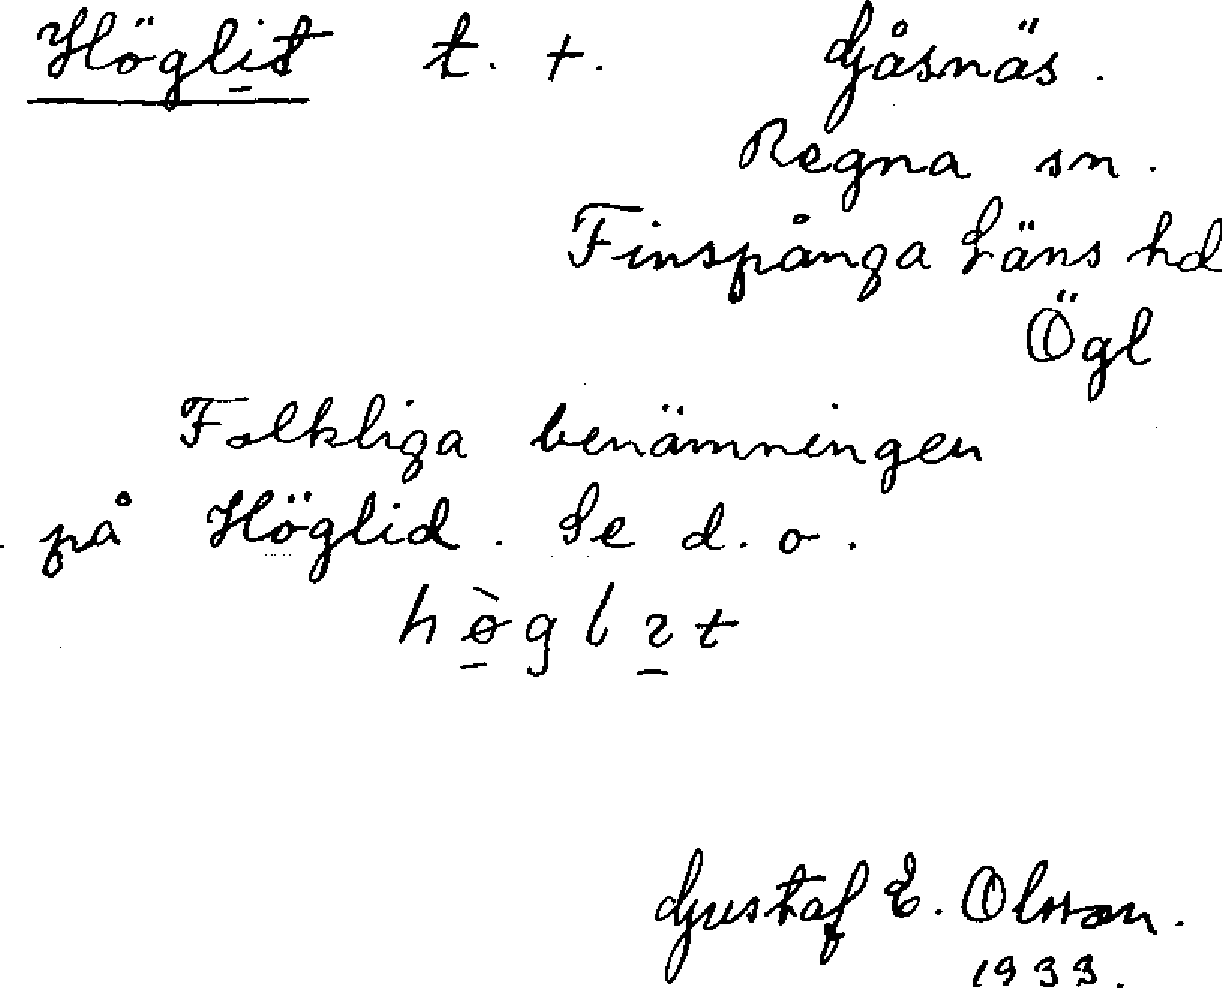 Höglit t. +. Gåsnäs.
Regna sn.
Finspånga Läns hd
Ögl
Folkliga benämningen
på Höglid. Se d. o.
hø̀glɩt
Gustaf E. Olsson.
1933.